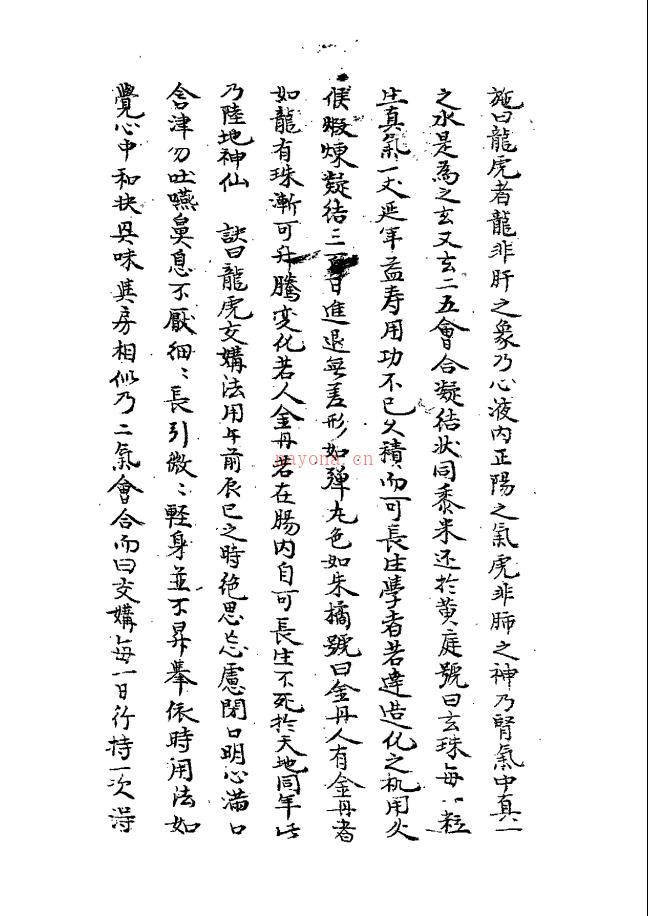 施曰龍虎者龍非肝之象乃心液內正陽之氣虎非肺之神乃腎氣中真一
之水是為之玄又玄二五會合凝結狀同黍米还於黄庭號曰玄珠每一粒
生真氣一丈延年益寿用功不已久積而可長生學者若達造化之机用火
候煅煉凝结三百日進退無差形如彈丸色如朱橘號曰金丹人有金丹者
如龍有珠漸可升騰变化若人金丹若在腸内自可長生不死扵天地同年此
乃陸地神仙 訣曰龍虎交媾法用午前辰巳之時绝思忘慮閉口明心满口
含津勿吐嚥鼻息不厭细〻長引微〻軽身並不昇舉依時用法如
覺心中和扶具味與房相似乃二氣會合而曰交媾每一日行持一次得
nayona.cn